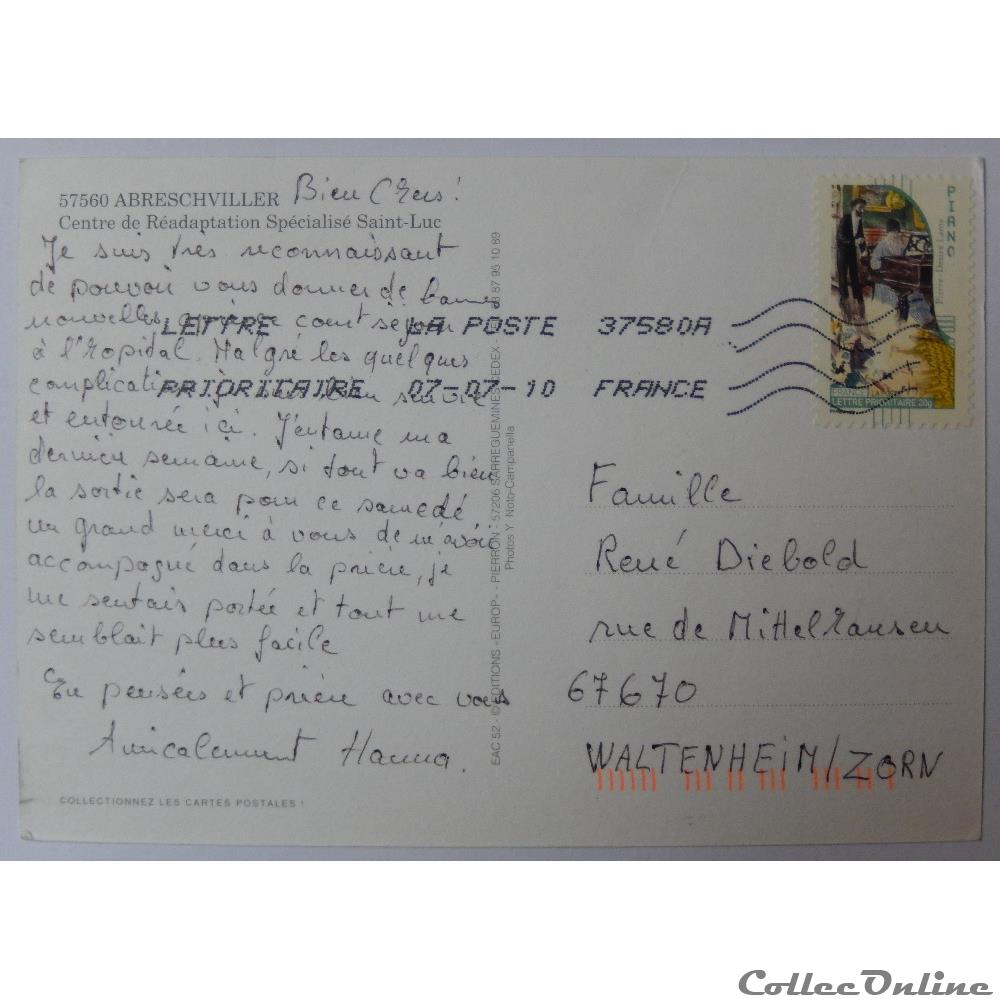 57560 ABRESCHVILLER
Centre de Réadaptation Spécialisé Saint-Luc
Bien Chers !
Je suis très reconnaissant
de pouvoir vous donner de bonnes
nouvelles, court séjour
à l'hopidal. Malgré les quelques
complications, bien suivie
et entourée ici. J'entame ma
dernière semaine, si tout va bien
la sortie sera pour ce samedé
un grand merci à vous de m'avoir
accompagné dans la prière, je
me sentais portée et tout me
semblait plus facile
En pensées et prière avec vous
Amicalement Hanna.
COLLECTIONNEZ LES CARTES POSTALES !
EAC 52 - © EDITIONS «EUROP» - PIERRON - 57206 SARREGUEMINES CEDEX - 87 95 10 89
Photos Y Noto-Campanella
LETTRE LA POSTE 37580A
PRIORITAIRE 07-07-10 FRANCE
PIANO
Pierre-Désiré Lamy
FRANCE
LETTRE PRIORITAIRE 20g
Famille
René Diebold
rue de Mittelhausen
67670
WALTENHEIM/ZORN
CollecOnline